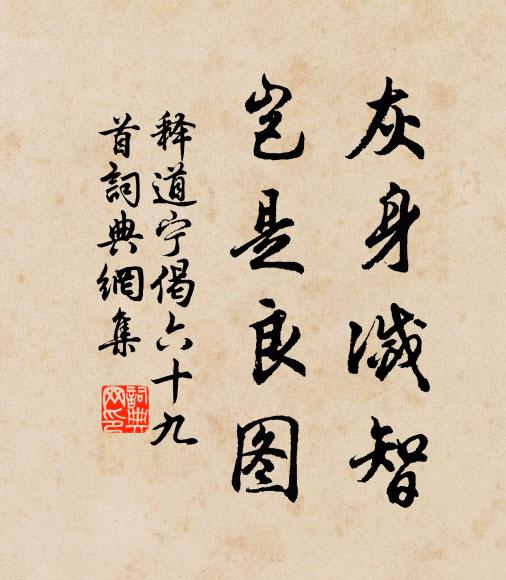 灰身滅智
岂是良图
释道宁偈六十九
首詞典網集
詞典
网印